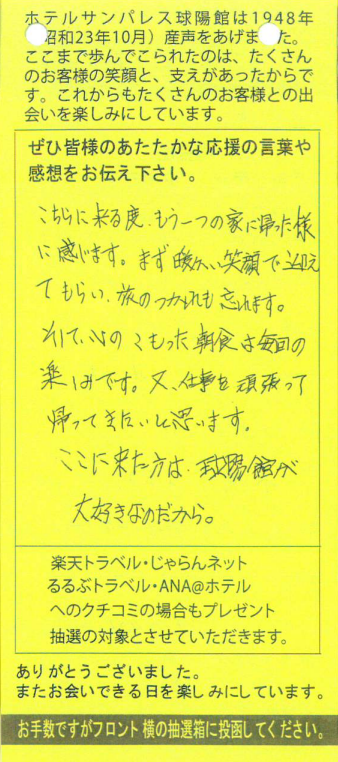 ホテルサンパレス球陽館は1948年
昭和23年10月）産声をあげました。
ここまで歩んでこられたのは、たくさん
のお客様の笑顔と、支えがあったからで
す。これからもたくさんのお客様との出
会いを楽しみにしています。
ぜひ皆様のあたたかな応援の言葉や
感想をお伝え下さい。
こちらに来る度、もう一つの家に帰った様
に感じます。まず暖かい笑顔で迎え
てもらい、旅のつかれも忘れます。
そして、心のこもった朝食は毎回の
楽しみです。又、仕事を頑張って
帰ってきたいと思います。
ここに来た方は、球陽館が
大好きなのだから。
楽天トラベル・じゃらんネット
るるぶトラベル・ANA@ホテル
へのクチコミの場合もプレゼント
抽選の対象とさせていただきます。
ありがとうございました。
またお会いできる日を楽しみにしています。
お手数ですがフロント横の抽選箱に投函してください。